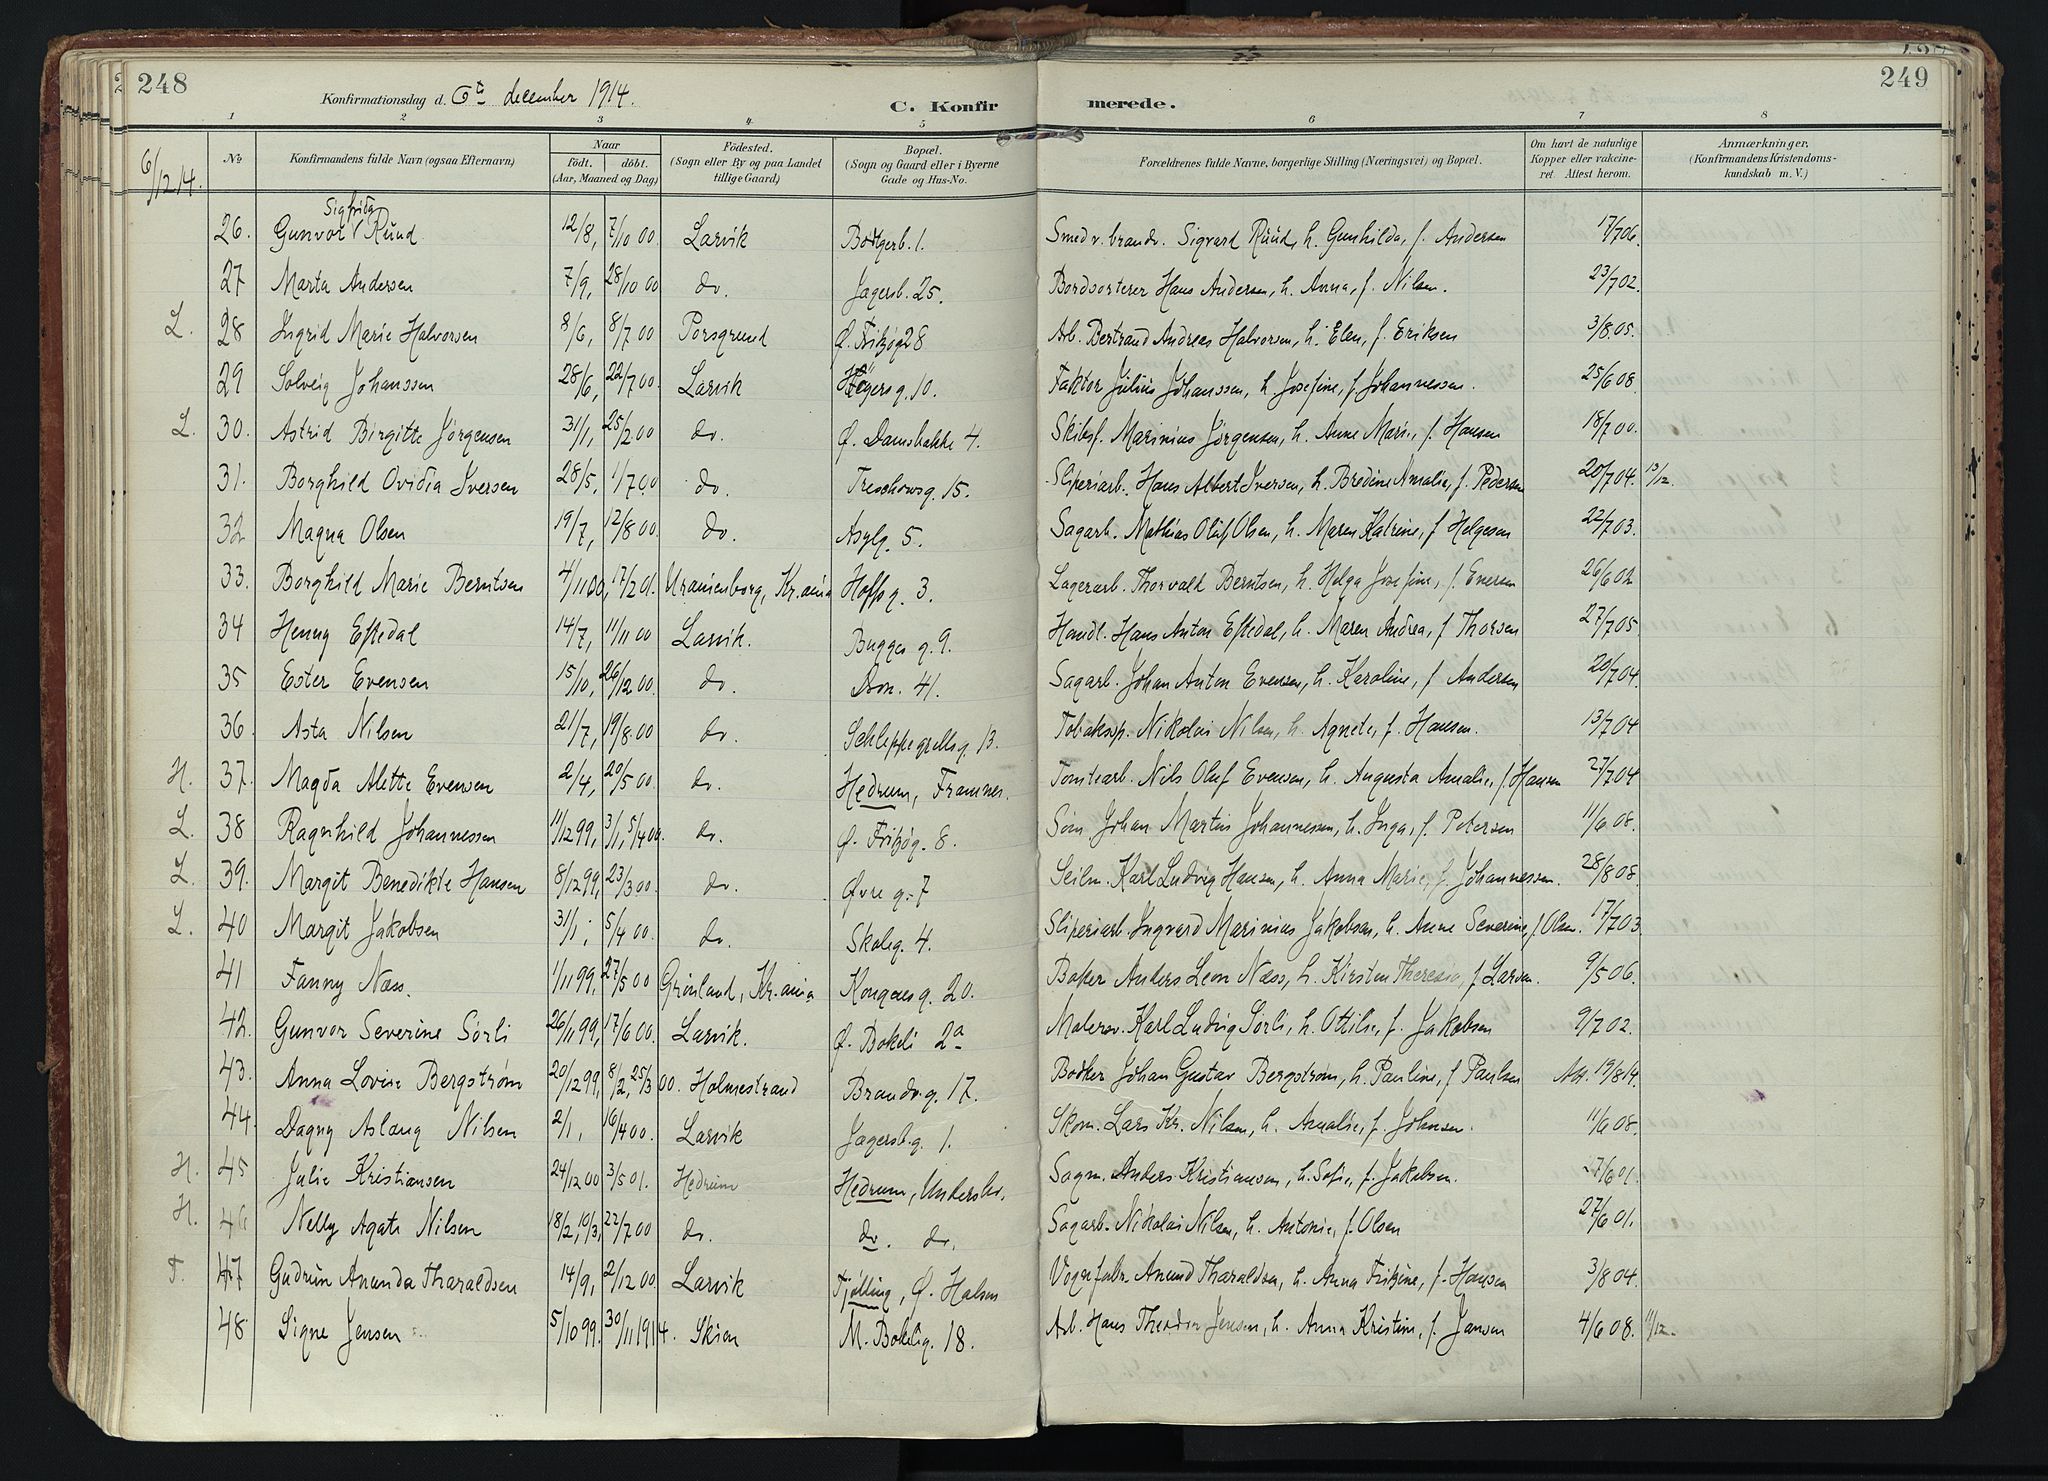 248
Konfirmationsdag d. 6te december 1914.
C. Konfirmerede.
249
1 2 3 4 5 6 7 8
No Konfirmandens fulde Navn (ogsaa Efternavn) Naar født. døbt. (Aar, Maaned og Dag) Fødested. (Sogn eller By og paa Landet tillige Gaard) Bopæl. (Sogn og Gaard eller i Byerne Gade og Hus-No. Forældrenes fulde Navne, borgerlige Stilling (Næringsvei) og Bopæl. Om havt de naturlige Kopper eller vakcineret. Attest herom. Anmærkninger. (Konfirmandens Kristendomskundskab m. V.)
6/12 14.
26. Gunvor Sigfrida Ruud 12/8, 7/10 00 Larvik 1. Smed v. brandv. Sigvard Ruud, h. Gunhilda, f. Andersen 17/7 06.
27 Marta Andersen 7/9, 28/10 00 do. Jagersb. 25. Bordsorterer Hans Andersen, h. Anna, f. Nilsen. 23/7 02.
L. 28 Ingrid Marie Halvorsen 8/6, 8/7 00 Porsgrund Ø. Fritzøg 28 Arb. Bertrand Andreas Halvorsen, h. Elen, f. Eriksen 3/8 05.
29 Solveig Johanssen 28/6, 22/7 00. Larvik Hegersg. 10. Faktor Julius Johanssen, h. Josefine, f. Johannessen. 25/6 08
L. 30. Astrid Birgitte Jörgensen 31/1, 25/2 00 do. Ø. Damsbakke 4. Skibsf. Marinius Jörgensen, h. Anne Marie, f. Hansen 18/7 00.
31. Borghild Ovidia Iversen 28/5, 1/7 00 do. Treschowsg. 15. Sliperiarb. Hans Albert Iversen, h. Bredine Amalie, f. Pedersen 20/7 04. 13/12.
32 Magna Olsen 19/7, 12/8 00. do. Asylg. 5. Sagarb. Mathias Oluf Olsen, h. Maren Katrine, f. Helgesen 22/7 03.
33. Borghild Marie Berntsen 4/11 00, 17/2 01. Uranienborg, Kr.ania Hoffsg. 3. Lagerarb. Thorvald Berntsen, h. Helga Josefine, f. Evensen 26/6 02
34 Henny Eftedal 14/7, 11/11 00 Larvik. Bugges g. 9. Handl. Hans Anton Eftedal, h. Maren Andrea, f. Thorsen 27/7 05
35 Ester Evensen 15/10, 26/12 00. do. 41. Sagarb. Johan Anton Evensen, h. Karoline, f. Andersen 20/7 04.
36. Asta Nilsen 21/7, 19/8 00 do. Schleppegrellsg. 13. Tobaksp. Nikolai Nilsen, h. Agnete, f. Hansen. 13/7 04
H. 37. Magda Alette Evensen 2/4, 20/5 00 do. Hedrum, Framnes. Tomtearb. Nils Oluf Evensen, h. Augusta Amalie, f. Hansen 27/7 04
L. 38 Ragnhild Johannessen 11/12 99, 3/1, 5/4 00. do. Ø. Fritzøg. 8. Søm. Johan Martin Johannessen, h. Inga, f. Petersen 11/6 08.
L. 39. Margit Benedikte Hansen 8/12 99, 23/3 00. do. Øvre g. 7 Seilm. Karl Ludvig Hansen, h. Anna Marie, f. Johannessen. 28/8 08.
L. 40 Margit Jakobsen 31/1, 5/4 00. do. Skoleg. 4. Sliperiarb Ingvard Marinius Jakobsen, h. Anne Severine, f. Olsen. 17/7 03.
41 Fanny Næss. 1/11 99, 27/5 00 Grönland, Kr.ania Kongensg. 20. Baker Anders Leon Næss, h. Kirsten Theresia, f. Larsen. 9/5 06.
42. Gunvor Severine Sörli 26/11 99, 17/6 00. Larvik. Ø. Bokeli 2a Malersv. Karl Ludvig Sörli, h. Ottilie, f. Jakobsen 9/7 02.
43. Anna Lovise Bergström 20/12 99, 8/2, 25/3 00. Holmestrand Brandv.g. 17. Bödker Johan Gustav Bergström, h. Pauline, f. Paulsen Att. 19/8 14.
44. Dagny Aslaug Nilsen 2/1, 16/4 00. Larvik Jagersb.g. 1. Skom. Lars Kr. Nilsen, h. Amalie, f. Johnsen. 11/6 08.
H. 45 Julie Kristiansen 24/12 00 3/5 01. Hedrum Hedrum, Undersbo. Sagm. Anders Kristiansen, h. Sofie, f. Jakobsen. 27/6 01.
H. 46 Nelly Agate Nilsen 18/2, 10/3, 22/7 00 do. do. do. Sagarb. Nikolai Nilsen, h. Antonie, f. Olsen 27/6 01.
T. 47 Gudrun Ananda Tharaldsen 14/9, 2/12 00 Larvik Tjølling, Ø. Halsen Vognfabr. Anund Tharaldsen, h. Anna Fritzine, f. Hansen 3/8 04.
48. Signe Jensen 5/10 99. 30/11 1914. Skien M. Bokelig. 18. Arb. Hans Theodor Jensen, h. Anna Kristine, f. Jansen 4/6 08. 11/12.